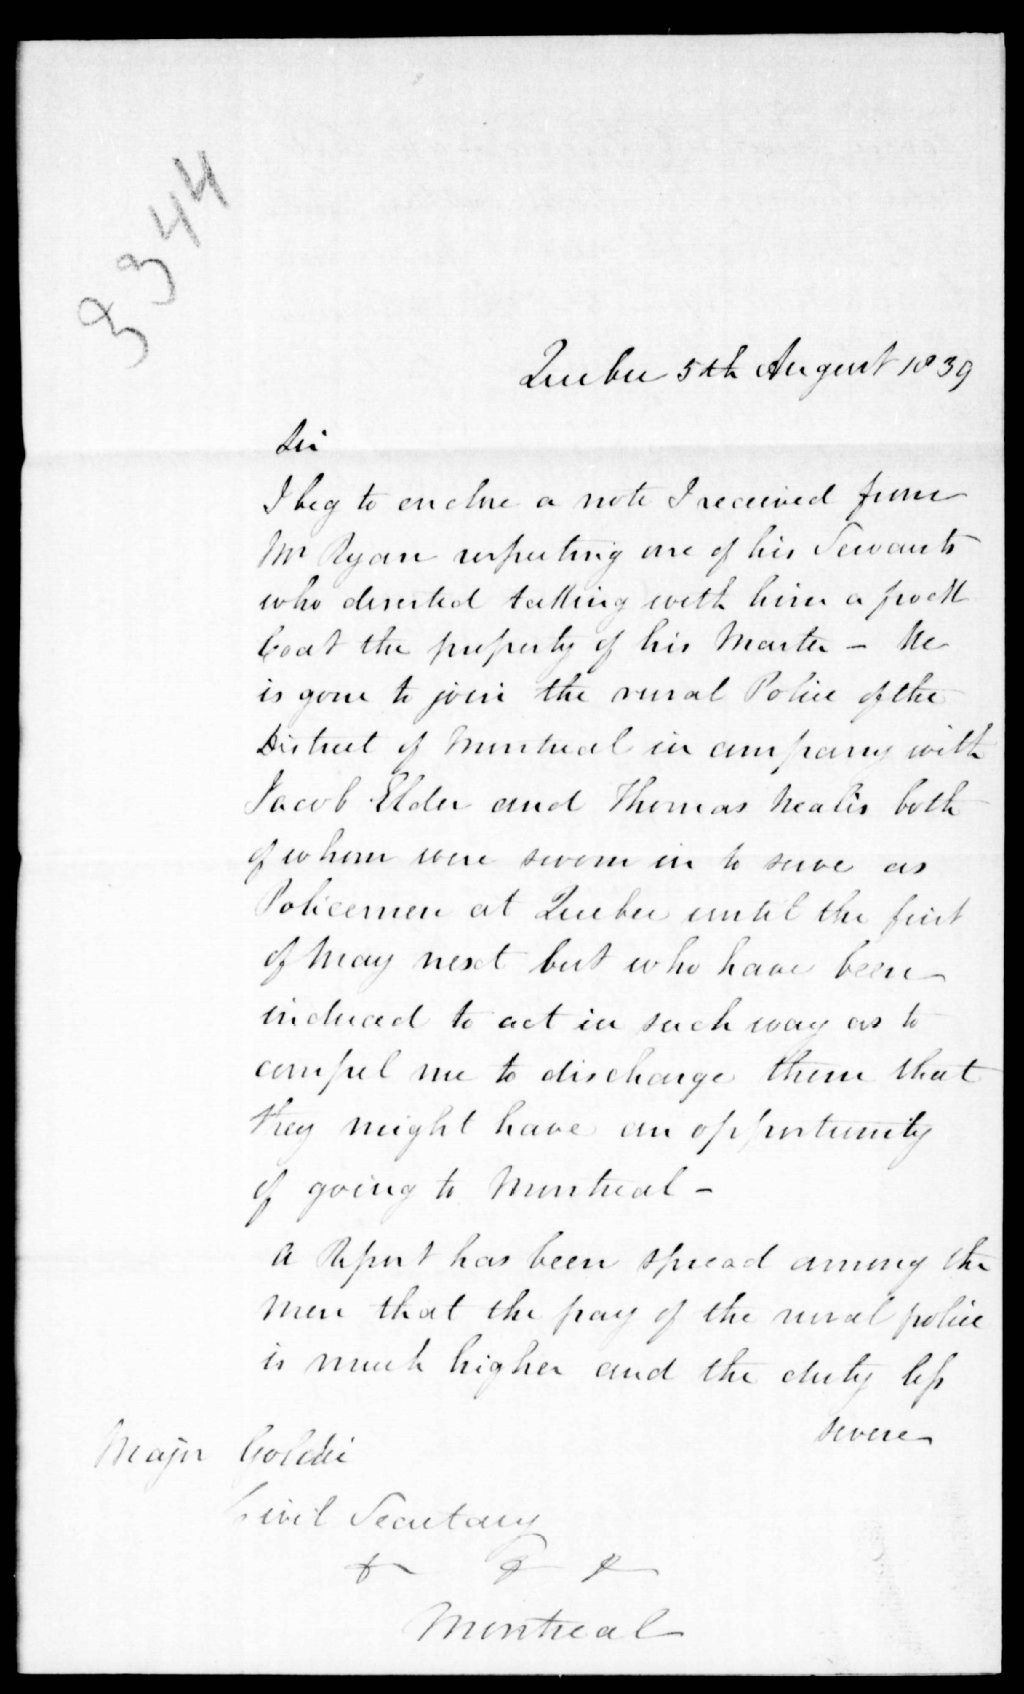 3344
Quebec 5th August 1839
Sir
I beg to enclose a note I received from
Mr Ryan respecting one of his Servants
who deserted taking with him a frock
Coat the property of his Master – He
is gone to join the rural Police of the
District of Montreal in company with
Jacob Elder and Thomas Nealis both
of whom were sworn in to serve as
Policemen at Quebec until the first
of May next but who have been
induced to act in such way as to
compel me to discharge them that
they might have an opportunity
of going to Montreal –
A Report has been spread among the
men that the pay of the rural police
is much higher and the duty less
severe
Major Goldie
Civil Secretary
& & &
Montreal